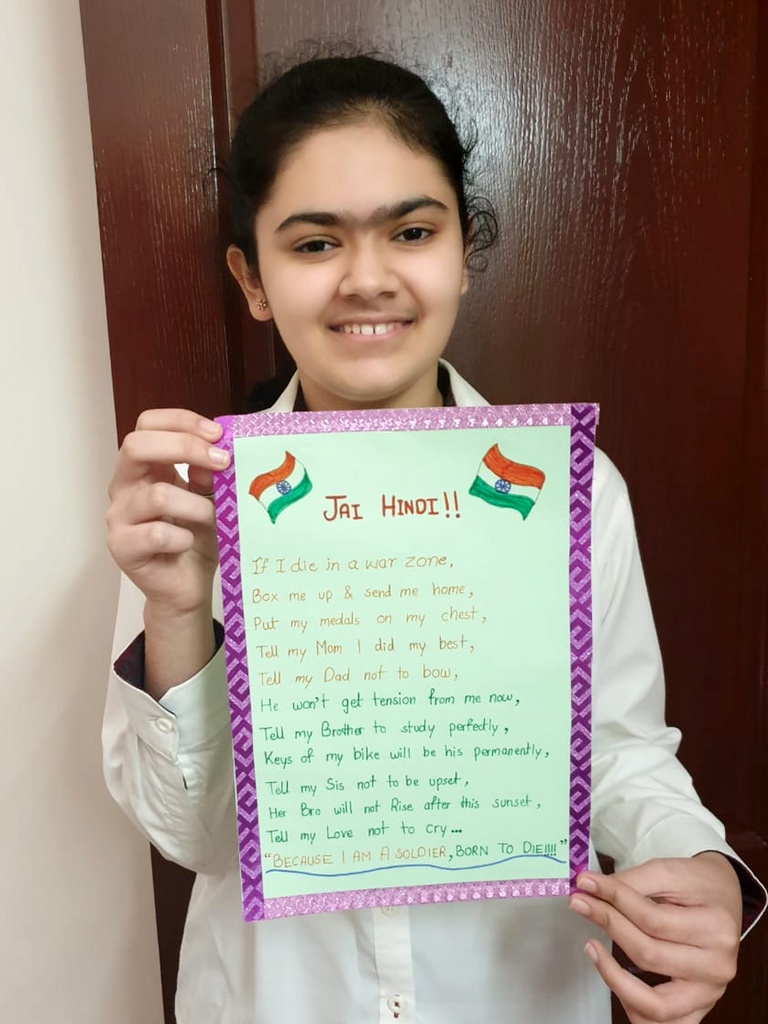 JAI HINDI!!
If I die in a war zone,
Box me up & send me home,
Put my medals on my chest,
Tell my Mom I did my best,
Tell my Dad not to bow,
He won't get tension from me now,
Tell my Brother to study perfectly,
Keys of my bike will be his permanently,
Tell my Sis not to be upset,
Her Bro will not Rise after this sunset,
Tell my Love not to cry...
"BECAUSE I AM A SOLDIER, BORN TO DIE!!!!"